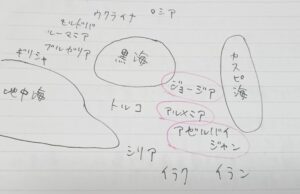 ウクライナ ロシア
モルドバ
ルーマニア
ブルガリア
ギリシャ
黒海
カスピ海
地中海
ジョージア
トルコ
アルメニア
アゼルバイ
ジャン
シリア
イラク イラン